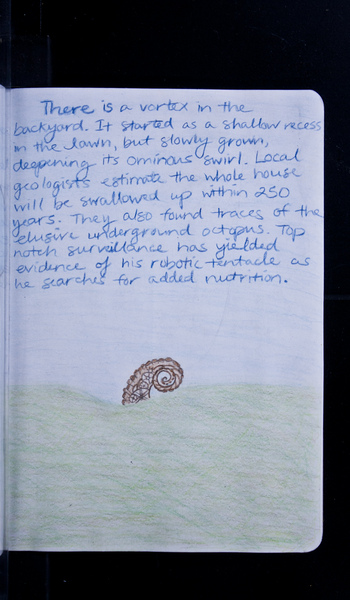 There is a vortex in the
backyard. It started as a shallow recess
in the lawn, but slowly grown,
deepening its ominous swirl. Local
geologists estimate the whole house
will be swallowed up within 250
years. They also found traces of the
elusive underground octopus. Top
notch surveillance has yielded
evidence of his robotic tentacle as
he searches for added nutrition.